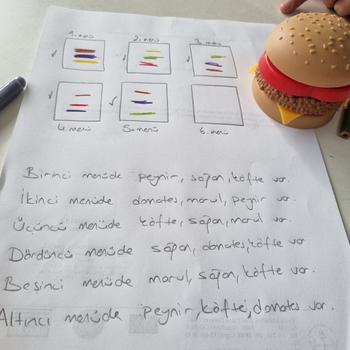 1. menü 2. menü 3. menü
4. menü 5. menü 6. menü
Birinci menüde peynir, soğan, köfte var.
İkinci menüde domates, marul, peynir var.
Üçüncü menüde köfte, soğan, marul var.
Dördüncü menüde soğan, domates, köfte var.
Beşinci menüde marul, soğan, köfte var.
Altıncı menüde peynir, köfte, domates var.